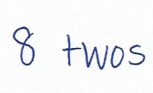 8 twos